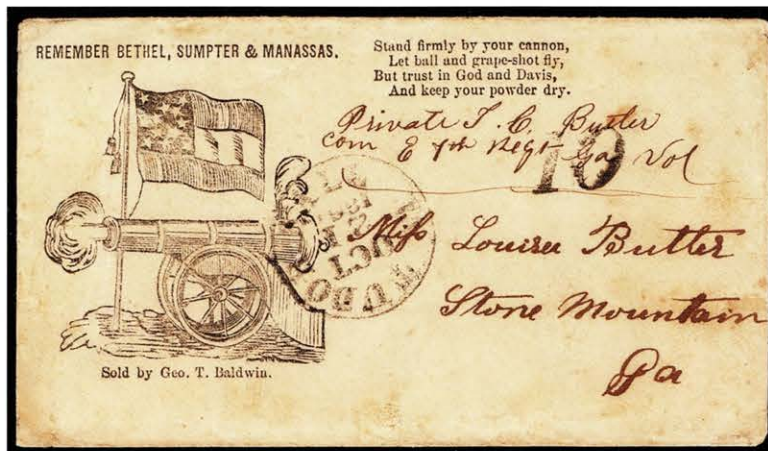 REMEMBER BETHEL, SUMPTER & MANASSAS.
Stand firmly by your cannon,
Let ball and grape-shot fly,
But trust in God and Davis,
And keep your powder dry.
Private T. C. Butler
Com E 7th Regt Ga Vol
10
OCT
Miss Louisa Butler
Stone Mountain
Ga
Sold by Geo. T. Baldwin.